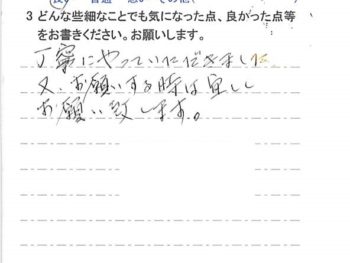 3 どんな些細なことでも気になった点、良かった点等
をお書きください。お願いします。
丁寧にやっていただきました
又、お願いする時は宜しく
お願い致します。